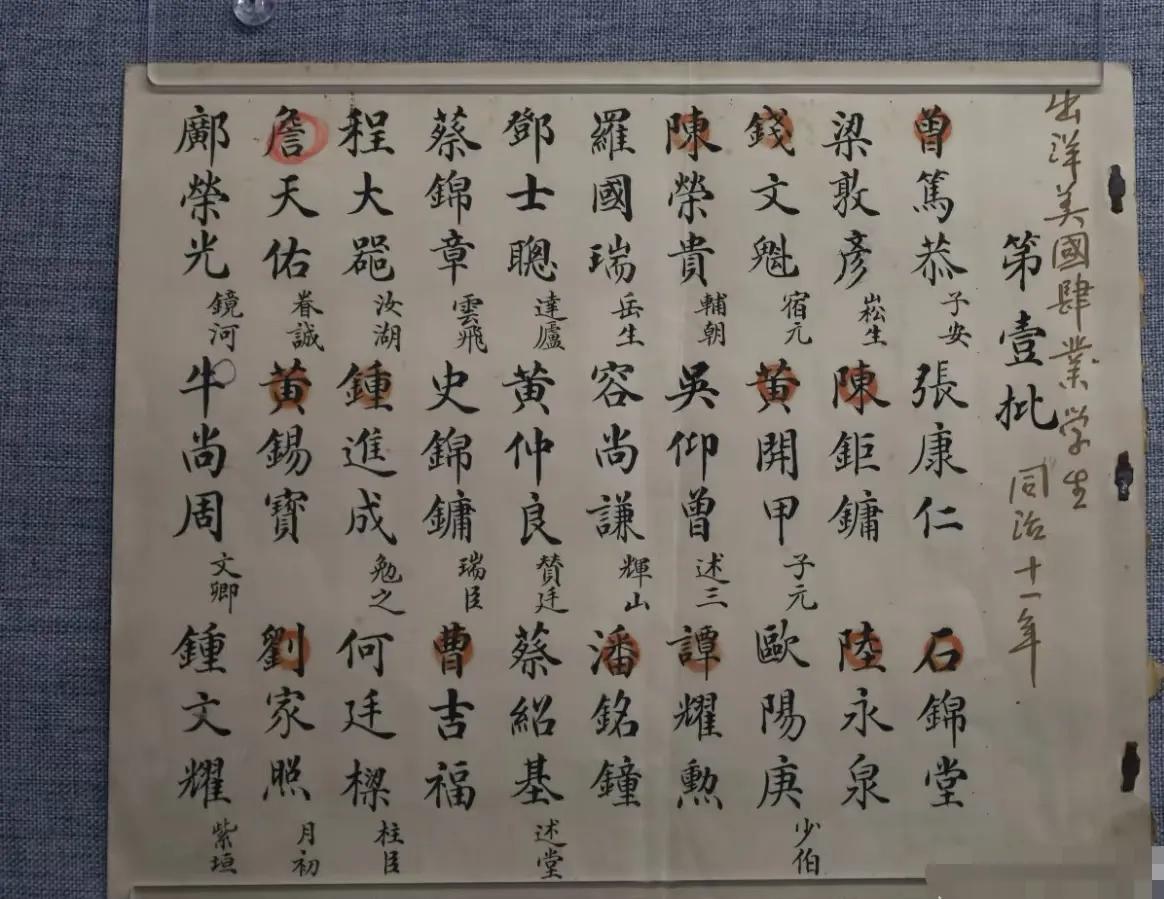 出洋美國肆業学生
第壹批 同治十一年
曾篤恭 子安 張康仁 石錦堂
梁敦彥 崧生 陳鉅鏞 陸永泉
錢文魁 宿元 黃開甲 子元 歐陽庚 少伯
陳榮貴 輔朝 吳仰曾 述三 譚耀勳
羅國瑞 岳生 容尚謙 輝山 潘銘鐘
鄧士聰 達廬 黃仲良 贊廷 蔡紹基 述堂
蔡錦章 雲飛 史錦鏞 瑞臣 曹吉福
程大噐 汝湖 鍾進成 勉之 何廷樑 柱臣
詹天佑 眷誠 黃錫寶 劉家照 月初
鄺榮光 鏡河 牛尚周 文卿 鍾文耀 紫垣